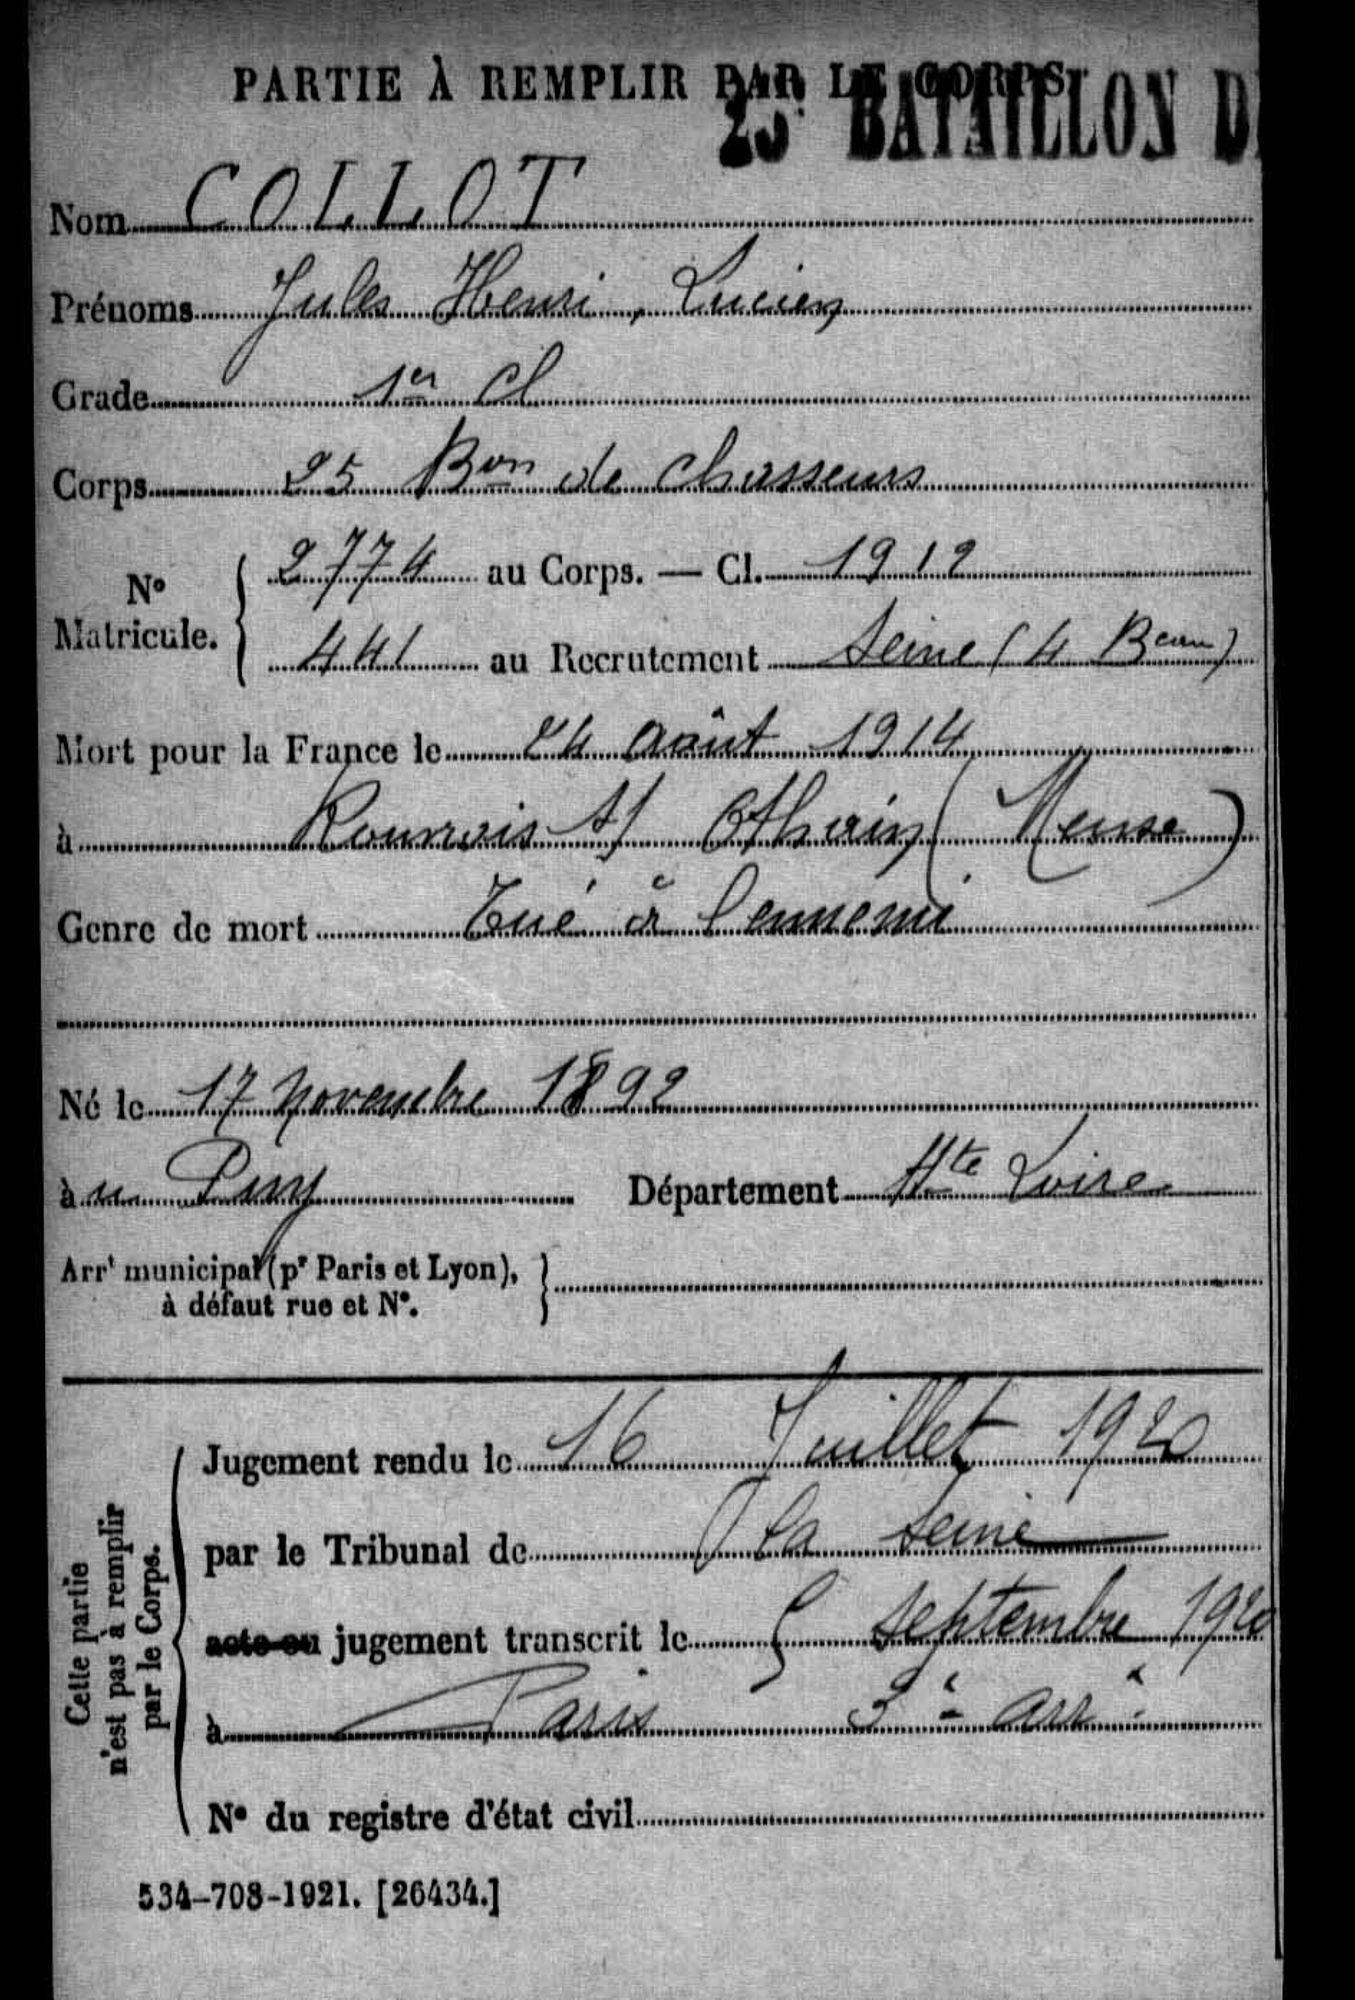 PARTIE À REMPLIR PAR LE CORPS
25e BATAILLON DE
Nom COLLOT
Prénoms Jules Henri, Lucien
Grade 1er cl
Corps 25 Bon de chasseurs
No Matricule. { 2774 au Corps. — Cl. 1912
441 au Recrutement Seine (4 Beau)
Mort pour la France le 24 août 1914
à Rouvrois s/ Othain (Meuse)
Genre de mort Tué à l'ennemi
Né le 17 novembre 1892
àu Puy Département Hte Loire
Arrt municipal (pr Paris et Lyon), }
à défaut rue et No.
Cette partie
n'est pas à remplir
par le Corps.
Jugement rendu le 16 Juillet 1920
par le Tribunal de la Seine
acte ou jugement transcrit le 5 Septembre 1920
à Paris 3e arrt
No du registre d'état civil
534-708-1921. [26434.]